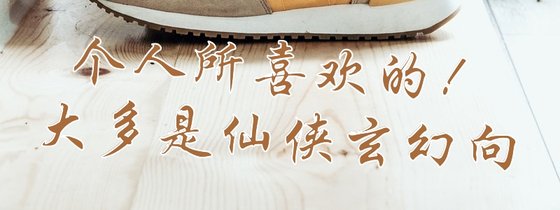 个人所喜欢的！
大多是仙侠玄幻向